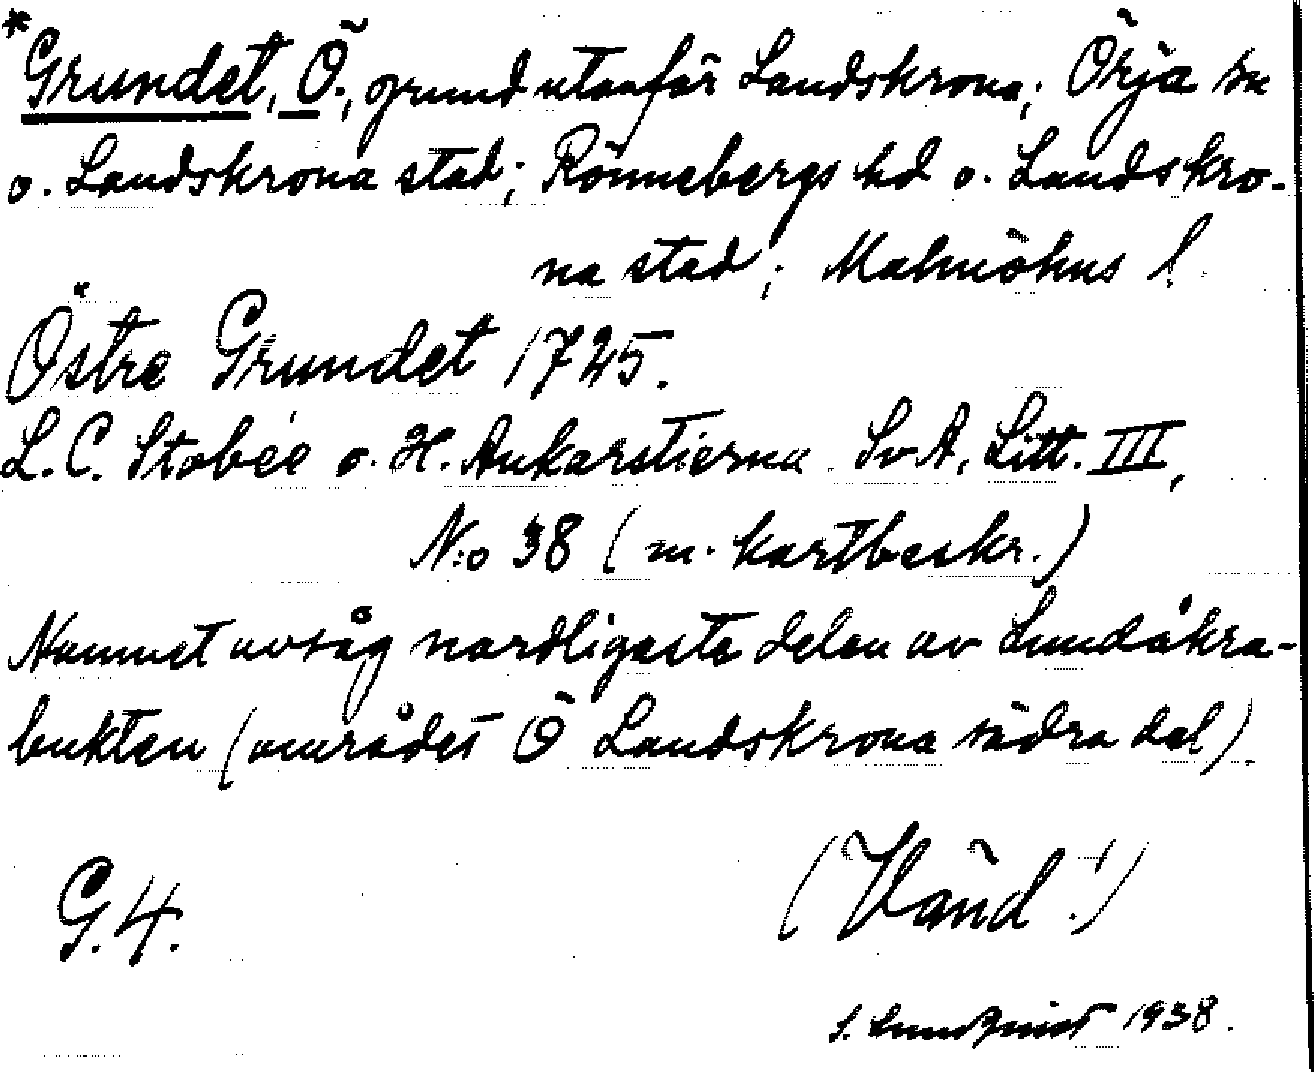 *Grundet, Ö., grund utanför Landskrona; Örja sn
o. Landskrona stad; Rönnebergs hd o. Landskro-
na stad; Malmöhus l.
Östre Grundet 1725.
L.C. Stobée o. H. Ankarstierna SvA, Litt. III,
N:o 38 (m. kartbeskr.)
Namnet avsåg nordligaste delen av Lundåkra-
bukten (området Ö Landskrona södra del).
G.4. (Vänd!)
S. Lundquist 1938.